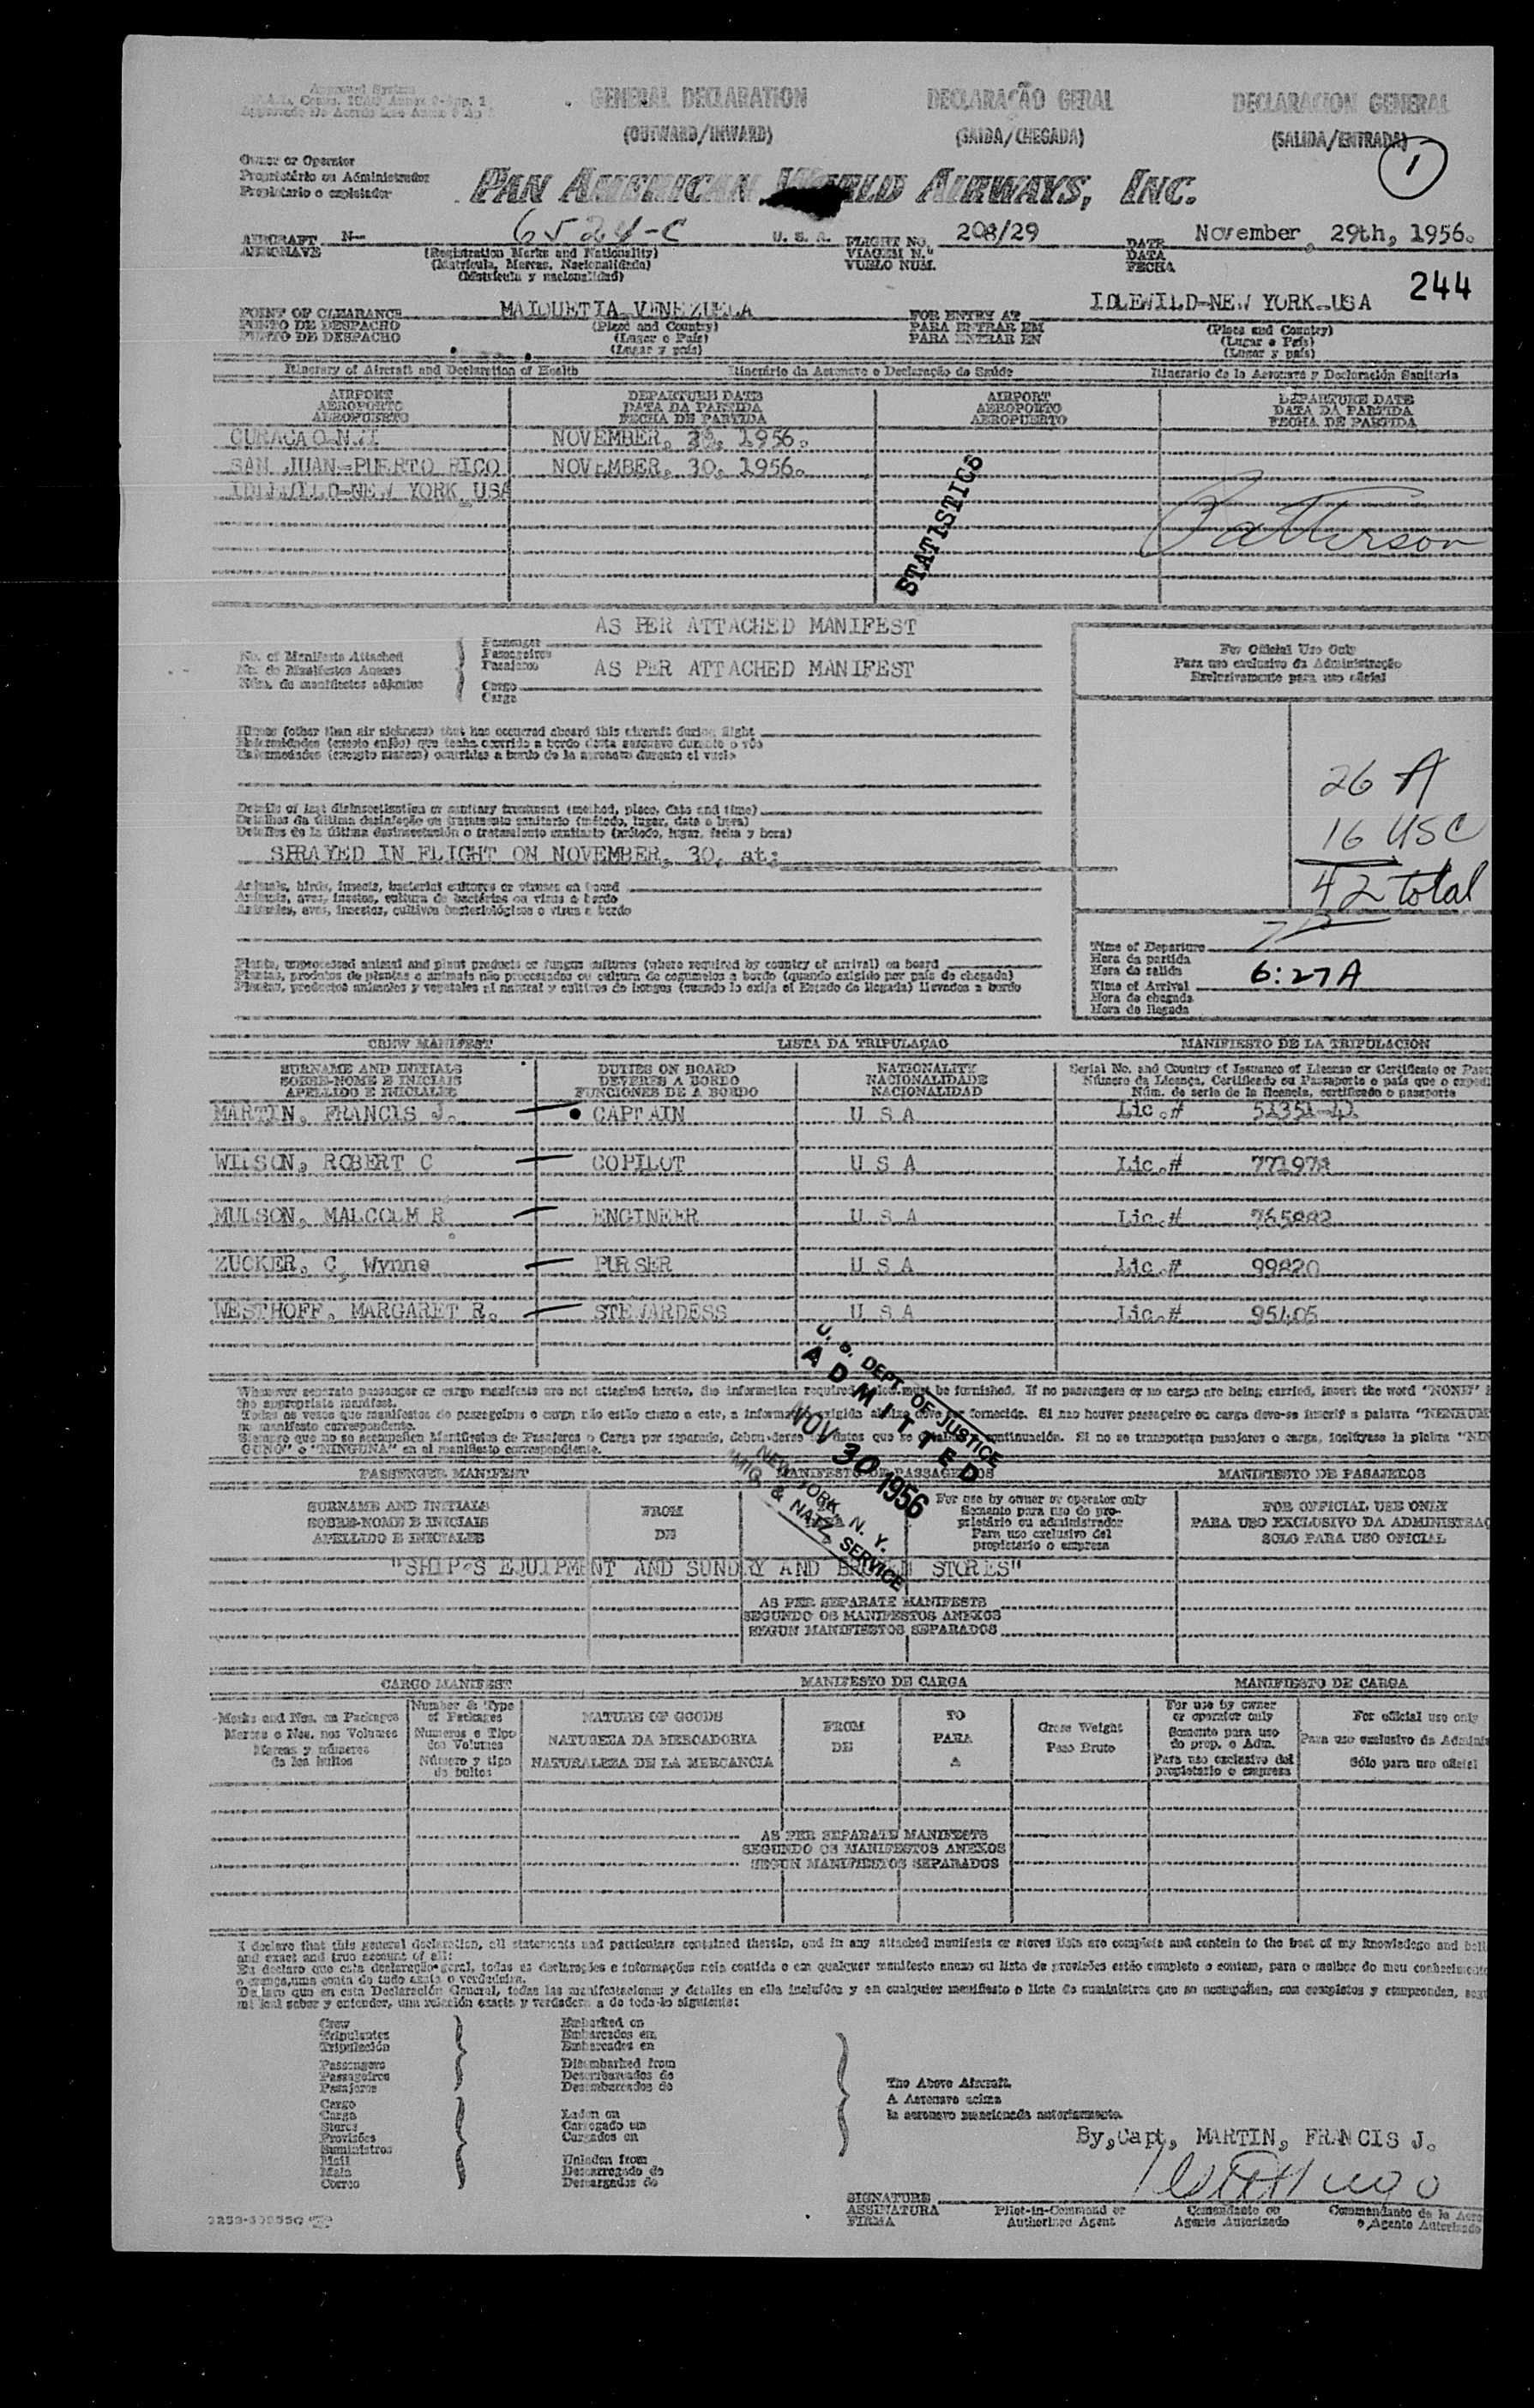 GENERAL DECLARATION DECLARAÇÃO GERAL DECLARACION GENERAL
(OUTWARD/INWARD) (SAIDA/CHEGADA) (SALIDA/ENTRADA)
1
Owner or Operator
Proprietário ou Administrador
Propietario o explotador
PAN AMERICAN WORLD AIRWAYS, INC.
AIRCRAFT N- 6524-C U. S. A. FLIGHT NO. 208/29 DATE November, 29th, 1956.
AERONAVE (Registration Marks and Nationality) VIAGEM N.º DATA
(Matrícula, Marcas, Nacionalidade) VUELO NUM. FECHA
(Matrícula y nacionalidad)
244
POINT OF CLEARANCE MAIQUETIA-VENEZUELA FOR ENTRY AT IDLEWILD-NEW YORK-USA
PONTO DE DESPACHO (Place and Country) PARA ENTRAR EM (Place and Country)
PUNTO DE DESPACHO (Lugar e País) PARA ENTRAR EN (Lugar e País)
(Lugar y país) (Lugar y país)
Itinerary of Aircraft and Declaration of Health Itinerário da Aeronave e Declaração de Saúde Itinerario de la Aeronave y Declaración Sanitaria
AIRPORT DEPARTURE DATE AIRPORT DEPARTURE DATE
AEROPORTO DATA DA PARTIDA AEROPORTO DATA DA PARTIDA
AEROPUERTO FECHA DE PARTIDA AEROPUERTO FECHA DE PARTIDA
CURAÇAO-N.I NOVEMBER, 1956.
SAN JUAN-PUERTO RICO NOVEMBER, 30, 1956.
IDLEWILD-NEW YORK, USA
STATISTICS
Patterson
AS PER ATTACHED MANIFEST
No. of Manifests Attached Passenger
No. de Manifestos Anexos Passageiros
Núm. de manifiestos adjuntos Pasajeros
AS PER ATTACHED MANIFEST
Cargo
Carga
For Official Use Only
Para uso exclusivo da Administração
Exclusivamente para uso oficial
Illness (other than air sickness) that has occurred aboard this aircraft during flight
Enfermidades (exceto enjôo) que tenha ocorrido a bordo desta aeronave durante o vôo
Enfermedades (excepto mareos) ocurridas a bordo de la aeronave durante el vuelo
26 A
16 USC
42 total
Details of last disinsectisation or sanitary treatment (method, place, date and time)
Detalhes da última desinfeção ou tratamento sanitario (método, lugar, data e hora)
Detalles de la última desinsectación o tratamiento sanitario (método, lugar, fecha y hora)
SPRAYED IN FLIGHT ON NOVEMBER, 30, at:
Animals, birds, insects, bacterial cultures or viruses on board
Animais, aves, insetos, cultura de bactérias ou virus a bordo
Animales, aves, insectos, cultivos bacteriológicos o virus a bordo
Plants, unprocessed animal and plant products or fungus cultures (where required by country of arrival) on board
Plantas, produtos de plantas e animais não processados ou cultura de cogumelos a bordo (quando exigido por país de chegada)
Plantas, productos animales y vegetales al natural y cultivos de hongos (cuando lo exija el Estado de llegada) llevados a bordo
Time of Departure
Hora da partida
Hora de salida
Time of Arrival 6:27A
Hora de chegada
Hora de llegada
CREW MANIFEST LISTA DA TRIPULAÇAO MANIFIESTO DE LA TRIPULACION
SURNAME AND INITIALS DUTIES ON BOARD NATIONALITY Serial No. and Country of Issuance of License or Certificate or Pass
SOBRE-NOME E INICIAIS DEVERES A BORDO NACIONALIDADE Número da Licença, Certificado ou Passaporte e país que o expedi
APELLIDO E INICIALES FUNCIONES DE A BORDO NACIONALIDAD Núm. de serie de la licencia, certificado o pasaporte
MARTIN, FRANCIS J. CAPTAIN U S A Lic.# 51351-41
WILSON, ROBERT C COPILOT U S A Lic.# 771978
MULSON, MALCOLM R ENGINEER U S A Lic.# 765882
ZUCKER, C, Wynne PURSER U S A Lic.# 99820
WESTHOFF, MARGARET R. STEWARDESS U S A Lic.# 95405
U. S. DEPT. OF JUSTICE
ADMITTED
NOV 30 1956
NEW YORK, N. Y.
IMMIG. & NATZ. SERVICE
Whenever separate passenger or cargo manifests are not attached hereto, the information required below must be furnished. If no passengers or no cargo are being carried, insert the word "NONE"
the appropriate manifest.
Todas as vezes que manifestos de passageiros e carga não estão anexo a este, a informação exigida abaixo deve ser fornecida. Si nao houver passageiro ou carga deve-se inscrir a palavra "NENHUM
no manifesto correspondente.
Siempre que no se acompañen Manifiestos de Pasajeros o Carga por separado, deben darse los datos que se detallan a continuación. Si no se transportan pasajeros o carga, inclúyase la plabra "NIN
GUNO" o "NINGUNA" en el manifiesto correspondiente.
PASSENGER MANIFEST MANIFESTO DE PASSAGEIROS MANIFIESTO DE PASAJEROS
SURNAME AND INITIALS FROM For use by owner or operator only FOR OFFICIAL USE ONLY
SOBRE-NOME E INICIAIS Somente para uso do pro- PARA USO EXCLUSIVO DA ADMINISTRAÇ
APELLIDO E INICIALES DE prietário ou administrador SOLO PARA USO OFICIAL
Para uso exclusivo del
propietario o empresa
"SHIP'S EQUIPMENT AND SUNDRY AND BROKEN STORES"
AS PER SEPARATE MANIFESTS
SEGUNDO OS MANIFESTOS ANEXOS
SEGUN MANIFIESTOS SEPARADOS
CARGO MANIFEST MANIFESTO DE CARGA MANIFIESTO DE CARGA
Marks and Nos. on Packages Number & Type of Packages NATURE OF GOODS FROM TO Gross Weight For use by owner or operator only For official use only
Marcas e Nos. nos Volumes Numeros e Tipo dos Volumes NATUREZA DA MERCADORIA DE PARA Peso Bruto Somente para uso do prop. o Adm. Para uso exclusivo da Adminis
Marcas y números de los bultos Número y tipo de bultos NATURALEZA DE LA MERCANCIA A Para uso exclusivo del propietario o empresa Sólo para uso oficial
AS PER SEPARATE MANIFESTS
SEGUNDO OS MANIFESTOS ANEXOS
SEGUN MANIFIESTOS SEPARADOS
I declare that this general declaration, all statements and particulars contained therein, and in any attached manifests or stores lists are complete and contain to the best of my knowledge and beli
and exact and true account of all:
Eu declaro que esta declaração geral, todas as declarações e informações nela contida e em qualquer manifesto anexo ou lista de provisões estão completo e contem, para o melhor do meu conhecimento
e crença, uma conta de tudo exata e verdadeira.
Declaro que en esta Declaración General, todas las manifestaciones y detalles en ella incluídos y en cualquier manifiesto o lista de suministros que se acompañen, son completos y comprenden, seg
mi leal saber y entender, una relación exacta y verdadera de todo lo siguiente:
Crew Embarked on
Tripulantes Embarcados em
Tripulación Embarcados en
Passengers Disembarked from
Passageiros Desembarcados de
Pasajeros Desembarcados de
The Above Aircraft.
A Aeronave acima
la aeronave mencionada anteriormente.
Cargo Laden on
Carga Carregado em
Stores Cargados en
Provisões
Suministros
Mail Unladen from
Mala Descarregado de
Correo Descargados de
By, Capt, MARTIN, FRANCIS J.
SIGNATURE
ASSINATURA Pilot-in-Command or Comandante ou Commandante de la Aero
FIRMA Authorized Agent Agente Autorizado o Agente Autorizado